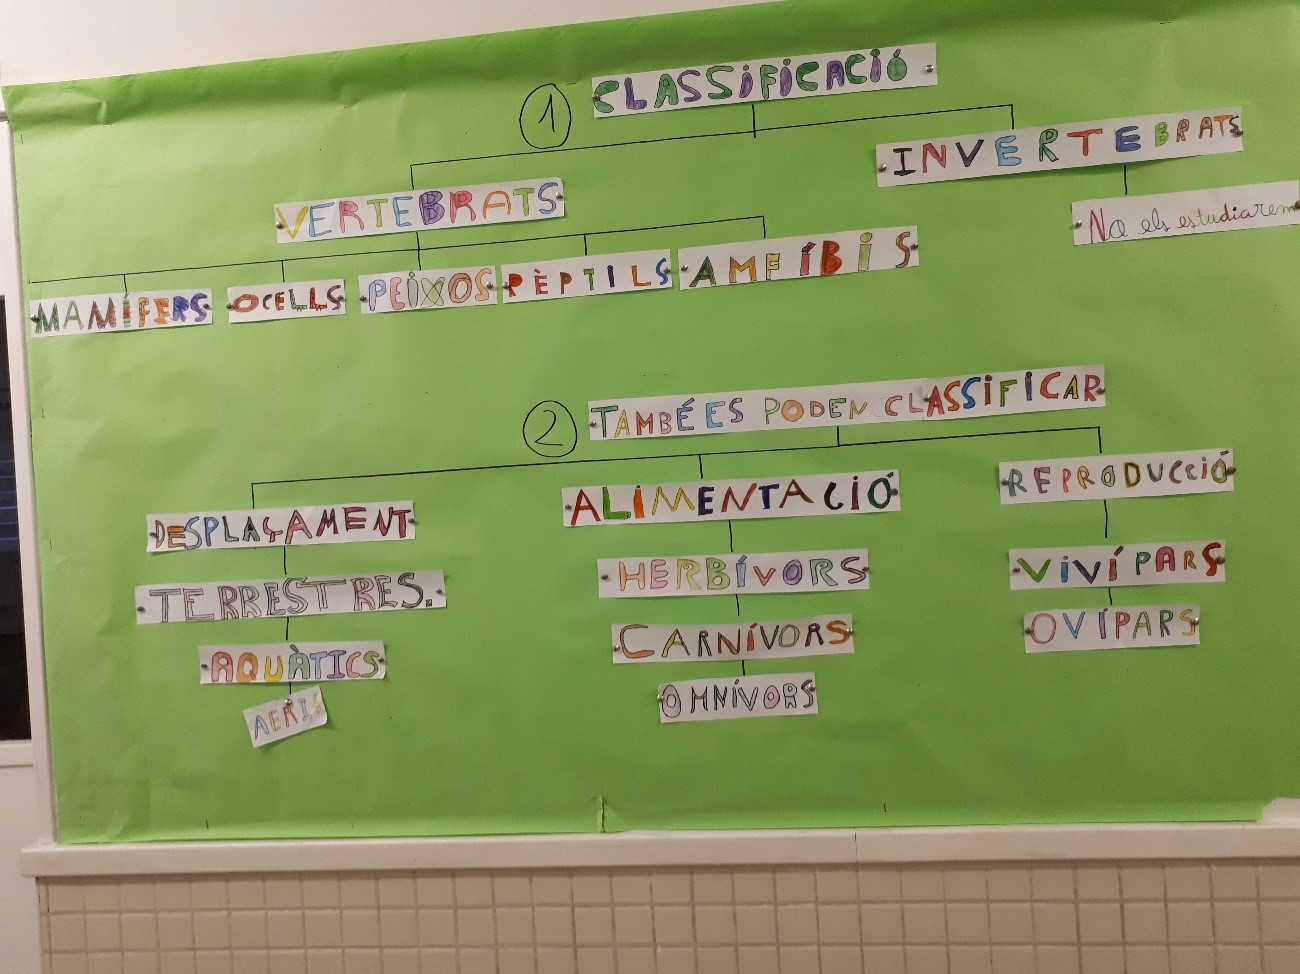 1 CLASSIFICACIÓ
VERTEBRATS
INVERTEBRATS
No els estudiarem
MAMÍFERS OCELLS PEIXOS RÈPTILS AMFÍBIS
2 TAMBÉ ES PODEN CLASSIFICAR
DESPLAÇAMENT
TERRESTRES.
AQUÀTICS
AERIS
ALIMENTACIÓ
HERBÍVORS
CARNÍVORS
OMNÍVORS
REPRODUCCIÓ
VIVÍPARS
OVÍPARS